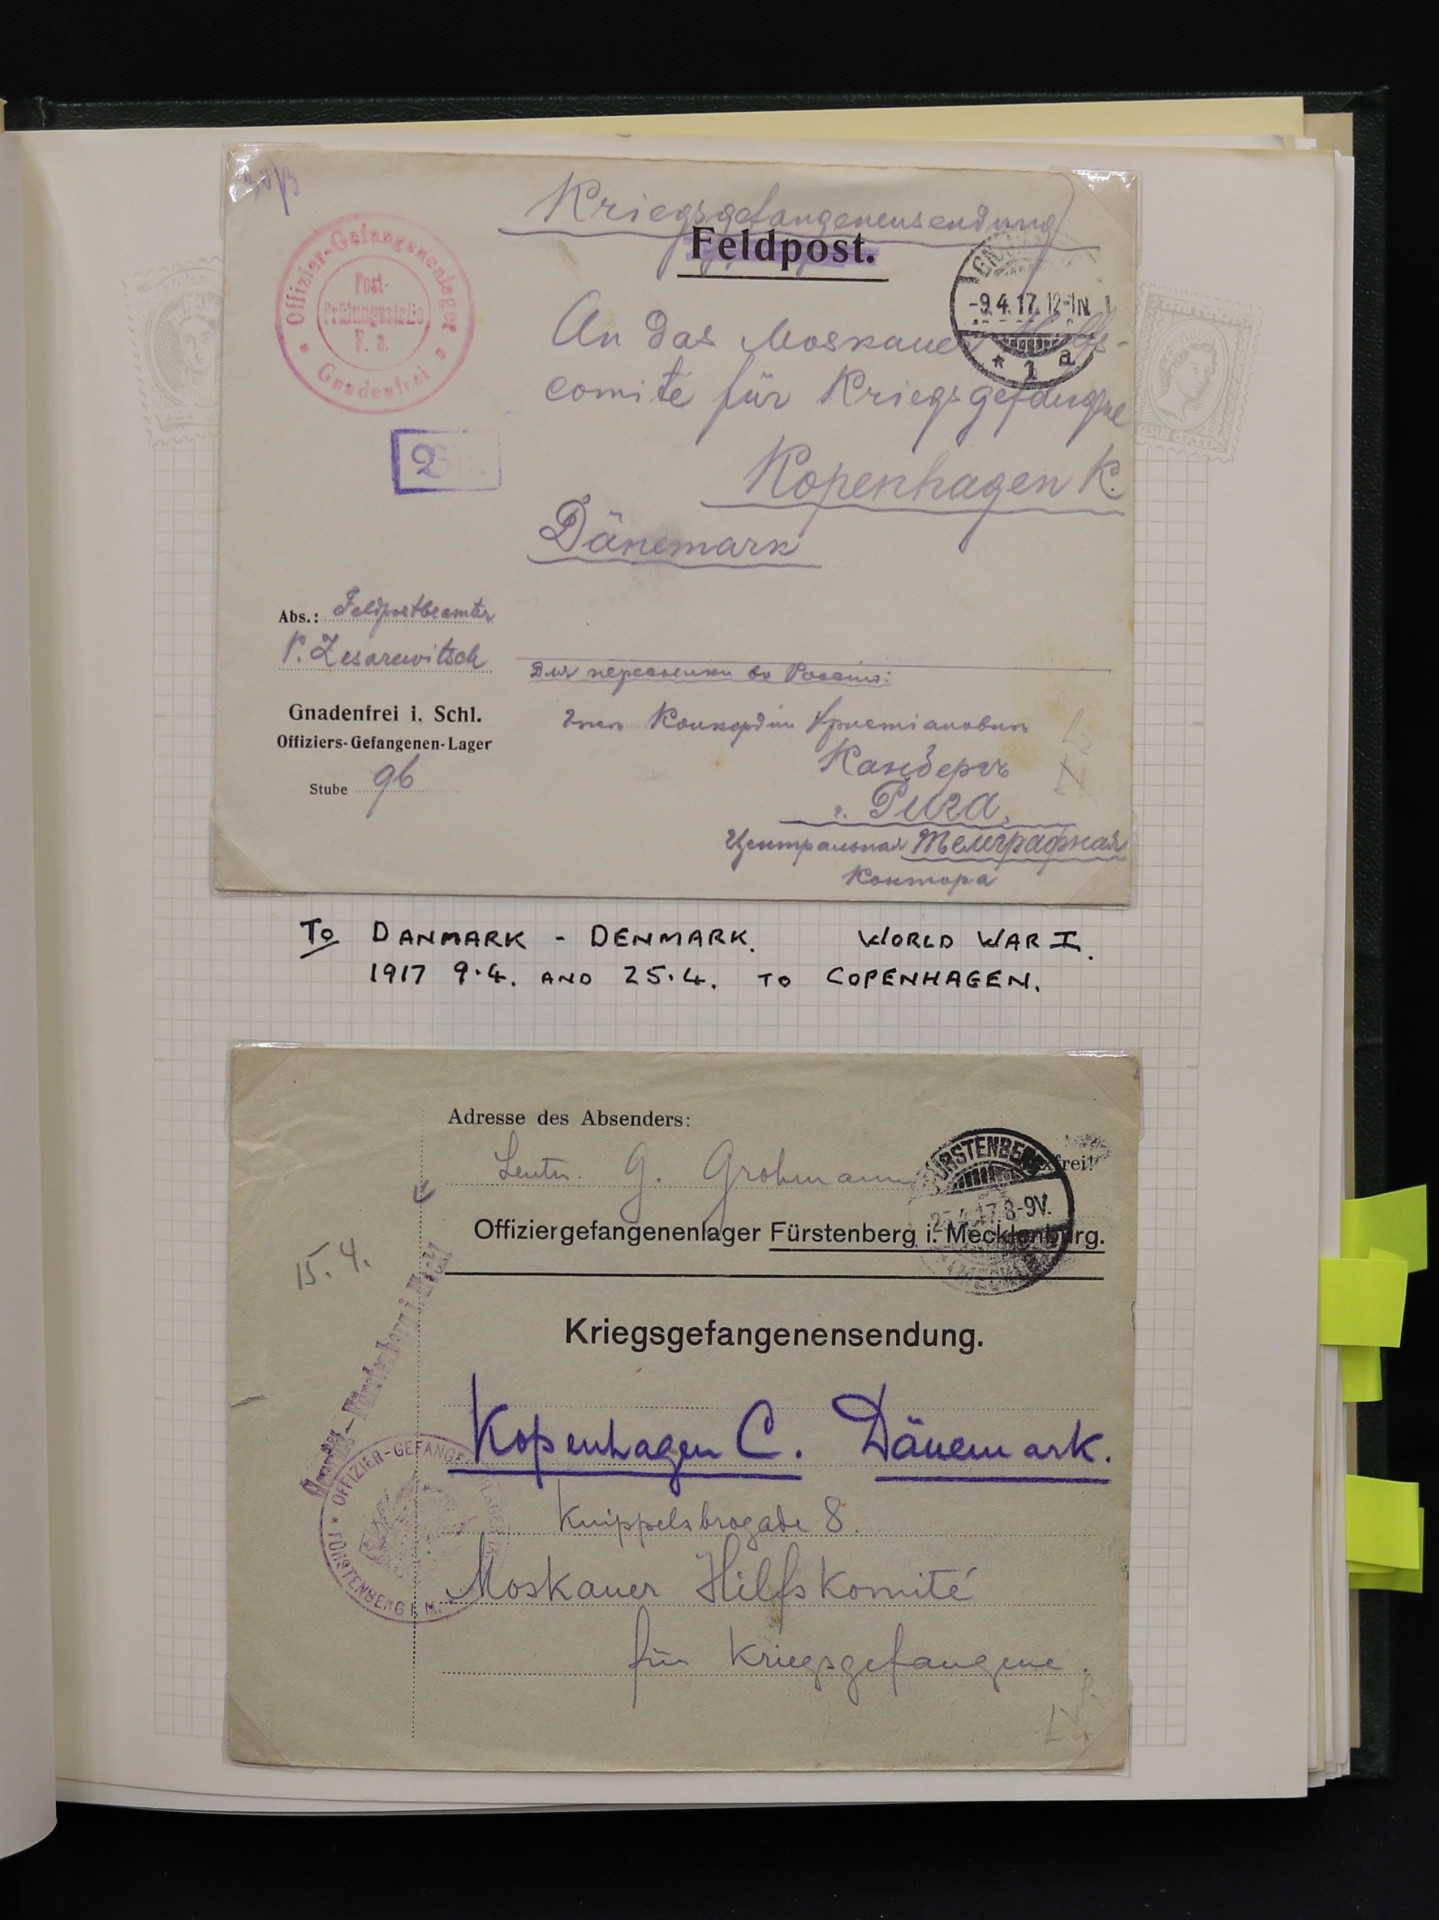 Kriegsgefangenensendung
Feldpost.
Offizier-Gefangenenlager
Post-
Prüfungsstelle
F. a.
* Gnadenfrei *
-9.4.17. 12-1N.
* 1 a
An das Moskauer Hilfs-
comité für Kriegsgefangene
Kopenhagen K.
Dänemark
Abs.: Feldpostbeamter
P. Zesarewitsch
Gnadenfrei i. Schl.
Offiziers-Gefangenen-Lager
Stube 9b
Для пересылки въ Россію:
Конкордіи Христіановнѣ
Канбергъ
г. Рига,
Центральная Телеграфная
Контора
To DANMARK - DENMARK. WORLD WAR I.
1917 9.4. AND 25.4. TO COPENHAGEN.
Adresse des Absenders:
G. Grohmann
FÜRSTENBERG
4.17. 8-9V.
Offiziergefangenenlager Fürstenberg i. Mecklenburg.
15.4.
Kriegsgefangenensendung.
Fürstenberg i.
Kopenhagen C. Dänemark.
* OFFIZIER-GEFANGENENLAGER *
FÜRSTENBERG i. M.
Knippelsbrogade 8.
Moskauer Hilfskomité
für Kriegsgefangene.